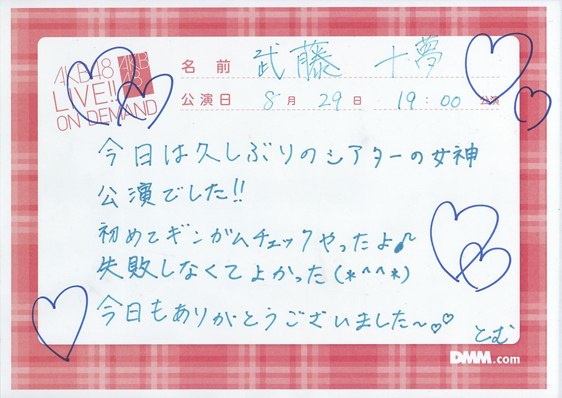 AKB48
LIVE!!
ON DEMAND
AKB
48
名前 武藤 十夢
公演日 8月 29日 19:00 公演
今日は久しぶりのシアターの女神
公演でした!!
初めてギンガムチェックやったよ♪
失敗しなくてよかった(*^^*)
今日もありがとうございました〜♡♡
とむ
DMM.com